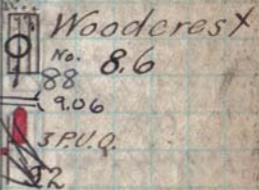 Woodcrest
No. 8.6
88
9.06
3 P.U.Q.